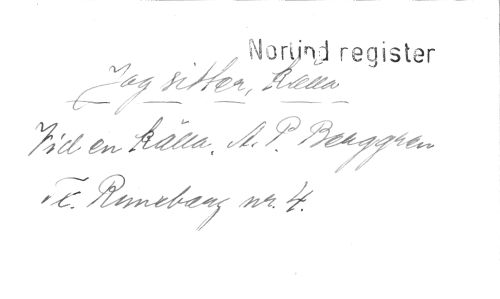 Norlind register
Jag sitter, källa
Vid en källa. A. P. Berggren
Tx. Runeberg nr. 4.